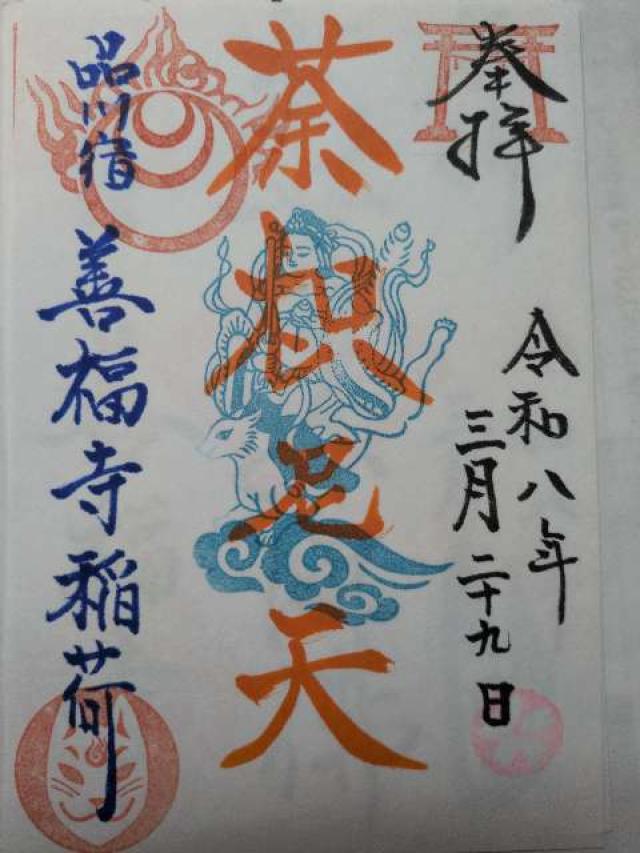 奉拝
令和八年
三月二十九日
荼枳尼天
品川宿
善福寺稲荷